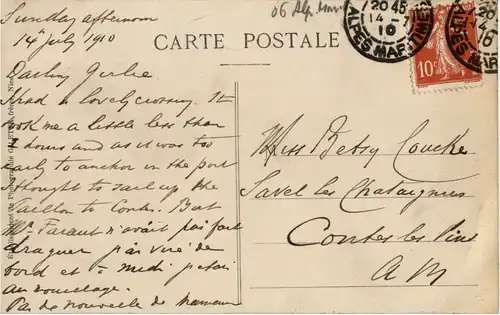 Sunday afternoon
14th July 1910
06 Alp. Marit.
CARTE POSTALE
20 45
14 - 7
10
ALPES MARITIMES
10c
Darling Girlie
I had a lovely crossing. It
took me a little less than
hours and as it was too
early to anchor in the port
I thought to sail up the
Paillon to Contes. But
Mr. n'avait pas fait
draguer j'ai viré de
bord et à midi j'étais
au mouillage.
Pas de nouvelle de
Miss Betsy
Les Chataigniers
Contes les Pins
A M